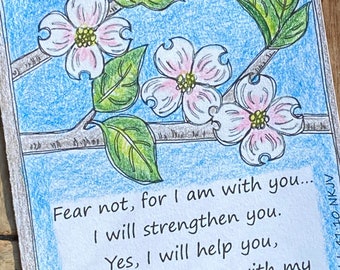 Fear not, for I am with you...
I will strengthen you.
Yes, I will help you,
with my
10 NKJV